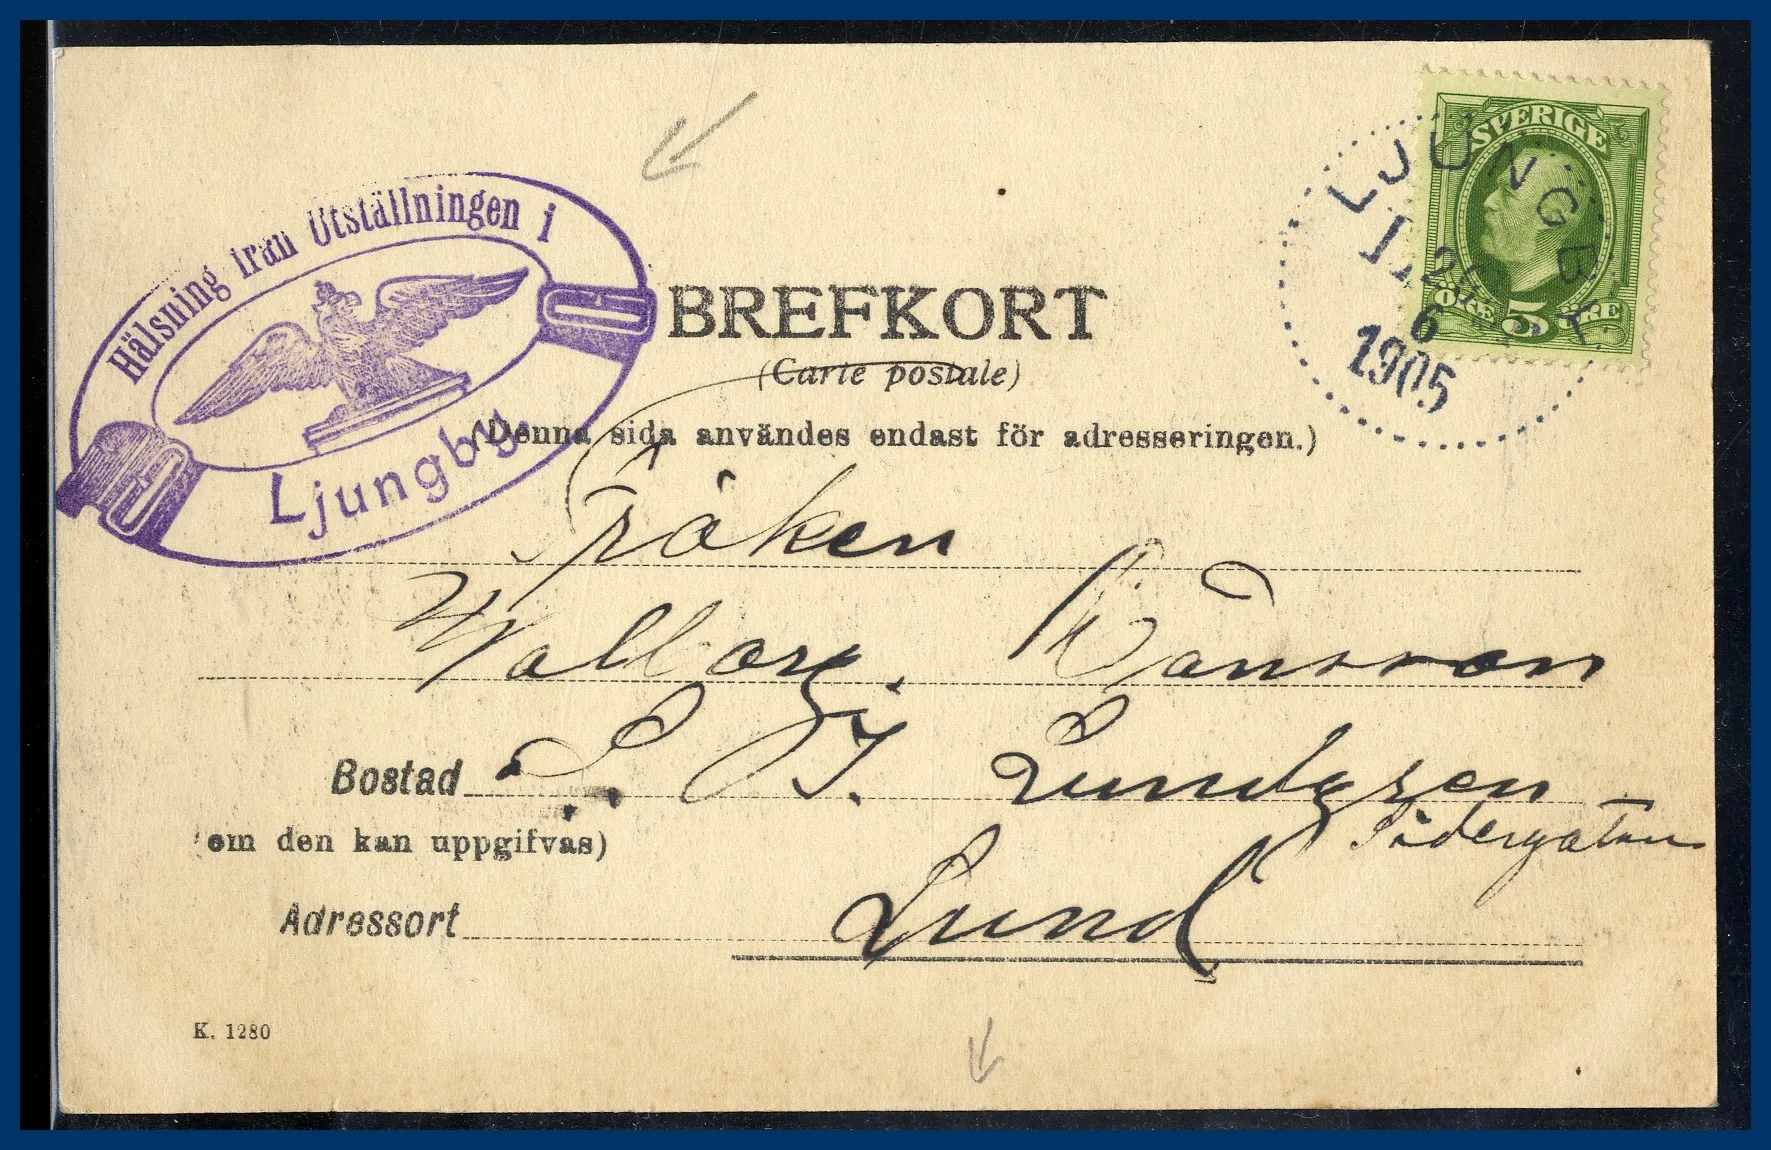 Hälsning från Utställningen i
Ljungby.
SVERIGE
ÖRE 5 ÖRE
LJUNGBY
1905
BREFKORT
(Carte postale)
(Denna sida användes endast för adresseringen.)
Fröken
Valborg
Bostad
Lundgren
Södergatan
(om den kan uppgifvas)
Adressort Lund
K. 1280